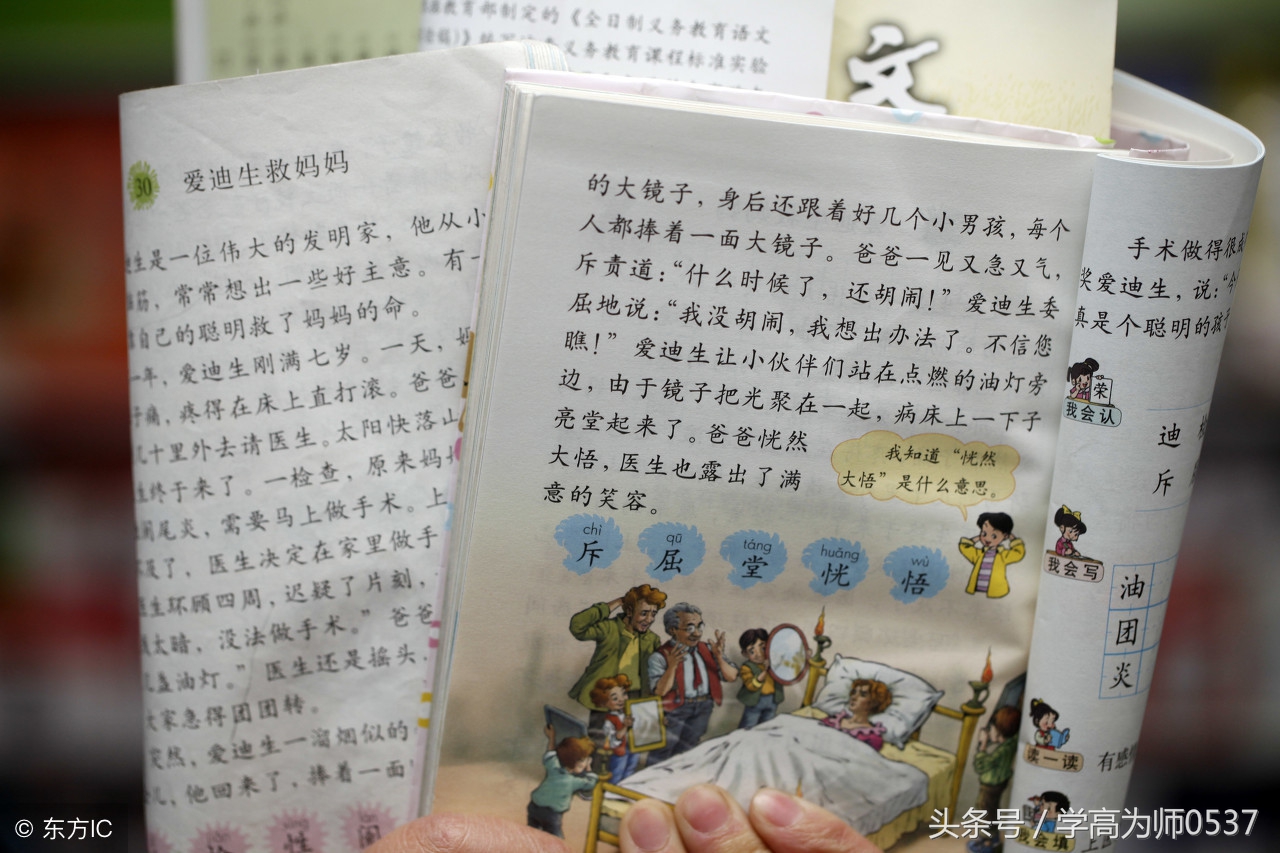 教育部制定的《全日制义务教育语文
义务教育课程标准实验
文
30 爱迪生救妈妈
生是一位伟大的发明家，他从小
筋，常常想出一些好主意。有一
自己的聪明救了妈妈的命。
年，爱迪生刚满七岁。一天，妈
痛，疼得在床上直打滚。爸爸
几十里外去请医生。太阳快落山
终于来了。一检查，原来妈
阑尾炎，需要马上做手术。上
了，医生决定在家里做手
医生环顾四周，迟疑了片刻，
太暗，没法做手术。”爸爸
盏油灯。”医生还是摇头，
大家急得团团转。
突然，爱迪生一溜烟似的
儿，他回来了，捧着一面
性
的大镜子，身后还跟着好几个小男孩，每个
人都捧着一面大镜子。爸爸一见又急又气，
斥责道：“什么时候了，还胡闹！”爱迪生委
屈地说：“我没胡闹，我想出办法了。不信您
瞧！”爱迪生让小伙伴们站在点燃的油灯旁
边，由于镜子把光聚在一起，病床上一下子
亮堂起来了。爸爸恍然
大悟，医生也露出了满
意的笑容。
我知道“恍然
大悟”是什么意思。
chì qū táng huǎng wù
斥 屈 堂 恍 悟
手术做得很
奖爱迪生，说：“今
真是个聪明的孩子
荣
我会认
迪
斥
我会写
油
团
炎
读一读
有感
我会填
© 东方IC
头条号 / 学高为师0537